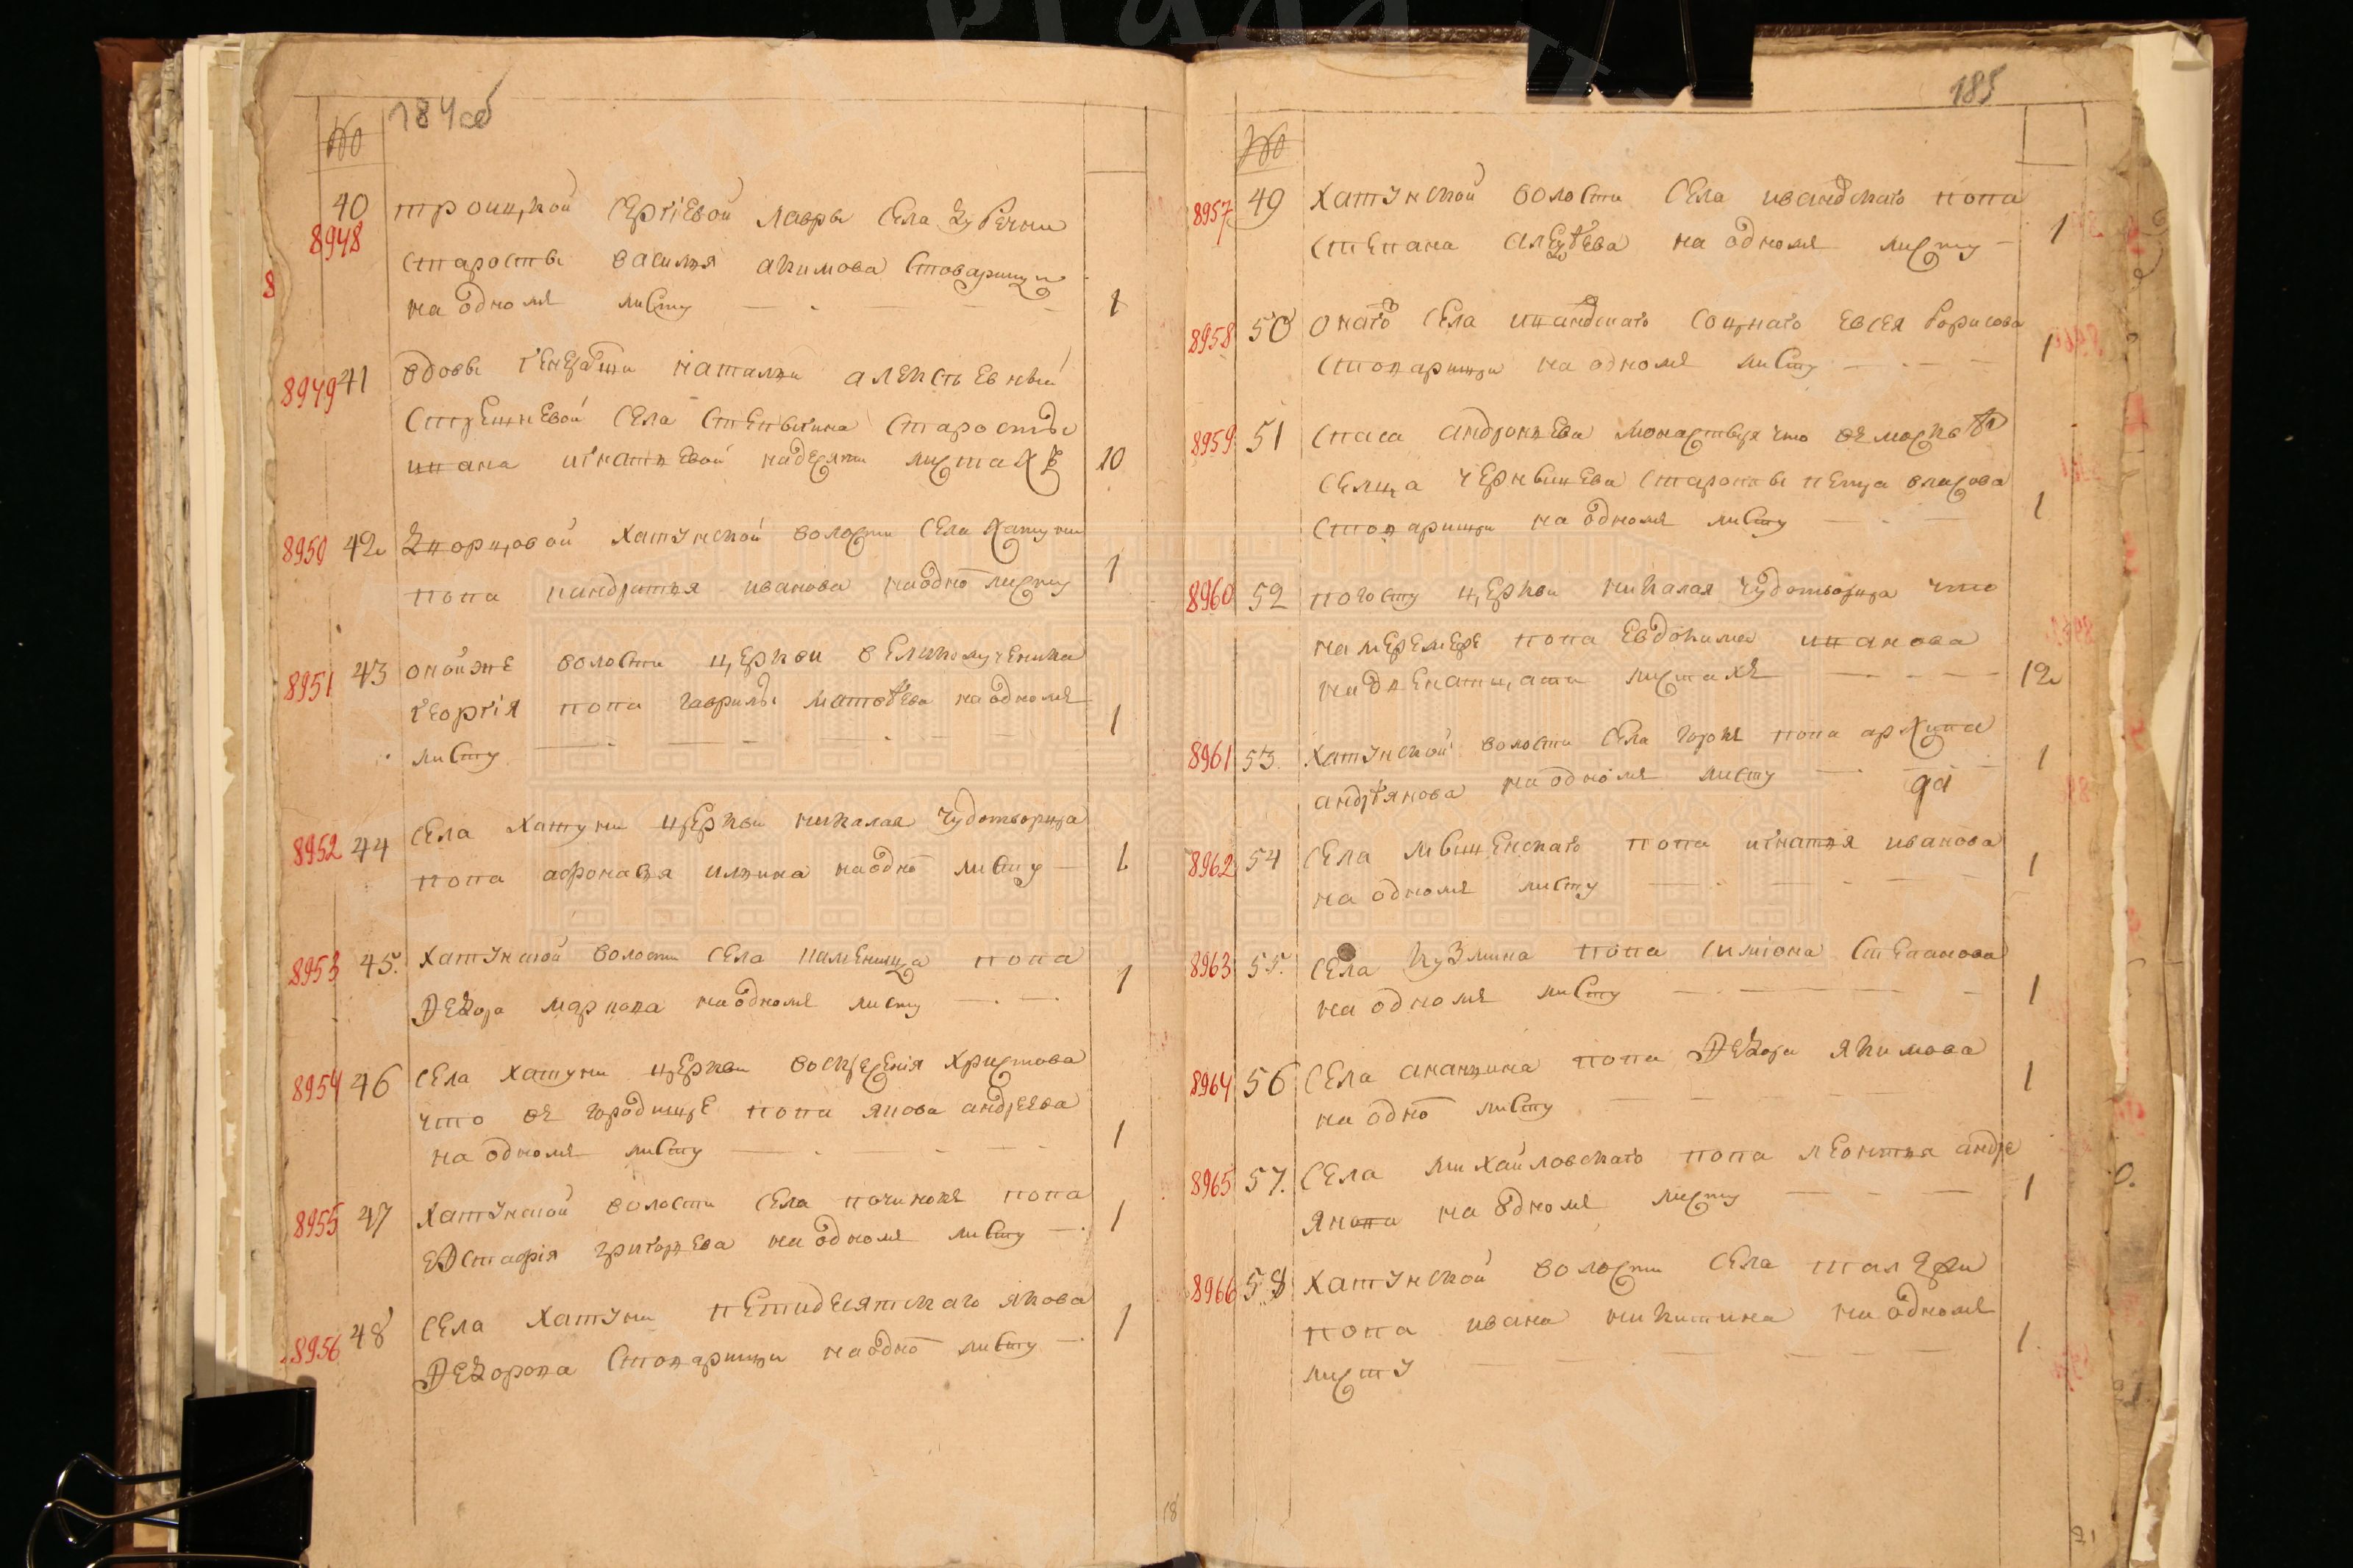 184об
№
40 троицкой сергiевой лавры села
8948
старосты василья акимова стоварищи
на одномъ листу 1
8
8949 41 вдовы натальи алексъевны
села старосты
ивана игнатьева надесяти листахъ 10
8950 42 дворцовой хатунской волости села хатуни
попа кандратья иванова наодно листу 1
8951 43 онойже волости церкви великомученика
георгiя попа гаврилы матвѣева наодномъ 1
листу
8952 44 села хатуни церкви николая чудотворца
попа афонасья ильина наодно листу 1
8953 45. хатунской волости села каменища попа
федора маркова наодномъ листу 1
8954 46 села хатуни церкви воскресенiя христова
что въ городище попа якова андреева
на одномъ листу 1
8955 47 хатунской волости села починокъ попа
евстафiя григорьева на одномъ листу 1
8956 48 села хатуни петидесятскаго якова
федорова стоварищи наодно листу 1
18
185
№
8957 49 хатунской волости села ивановскаго попа
степана на одномъ листу 1
8958 50 онаго села ивановскаго соцкаго евсея борисова
стоварищи на одномъ листу 1
8959 51 спаса андроньева монастыря что въ москвѣ
селца старосты петра власова
стоварищи на одномъ листу 1
8960 52 погосту церкви николая чудотворца что
попа евдокима иванова
на двенатцати листахъ 12
8961 53. хатунской волости села горокъ попа архипа
андреянова на одномъ листу 1
8962 54 села попа игнатья иванова
на одномъ листу 1
8963 55. села кузмина попа симiона степанова
на одномъ листу 1
8964 56 села ананьина попа федора якимова
на одно листу 1
8965 57. села михайловскаго попа леонтья андре
янова на одномъ листу 1
8966 58 хатунской волости села
попа ивана никитина на одномъ
листу 1
21